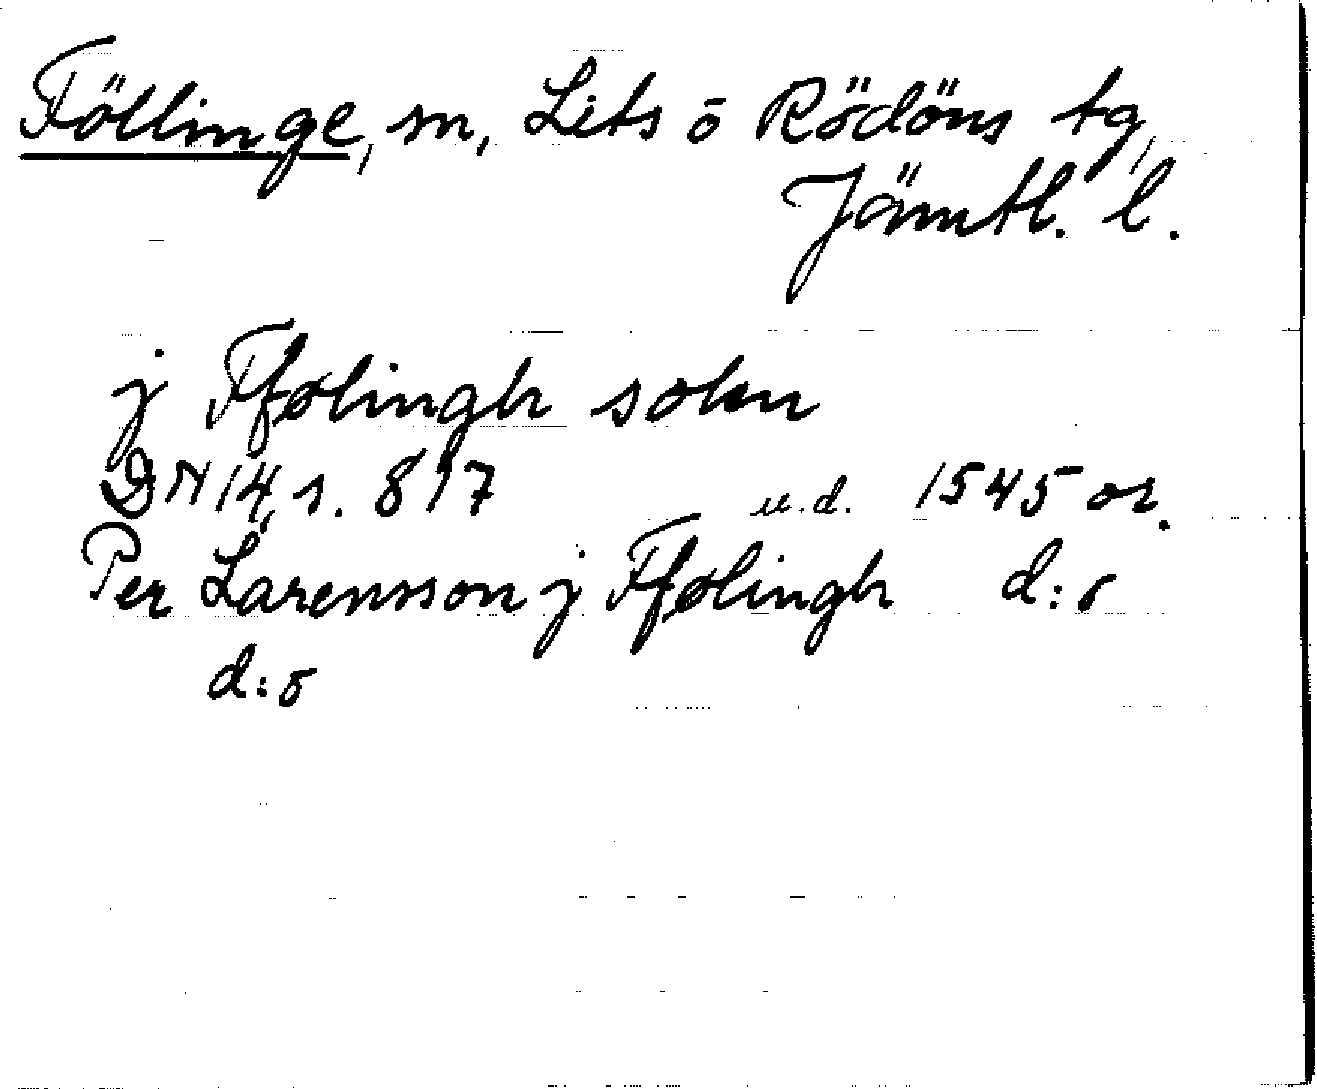 Föllinge, sn, Lits o Rödöns tg,
Jämtl. l.
j Ffølingh sokn
DN 14, s. 817 u.d. 1545 or.
Per Larensson j Ffølingh d:o
d:o